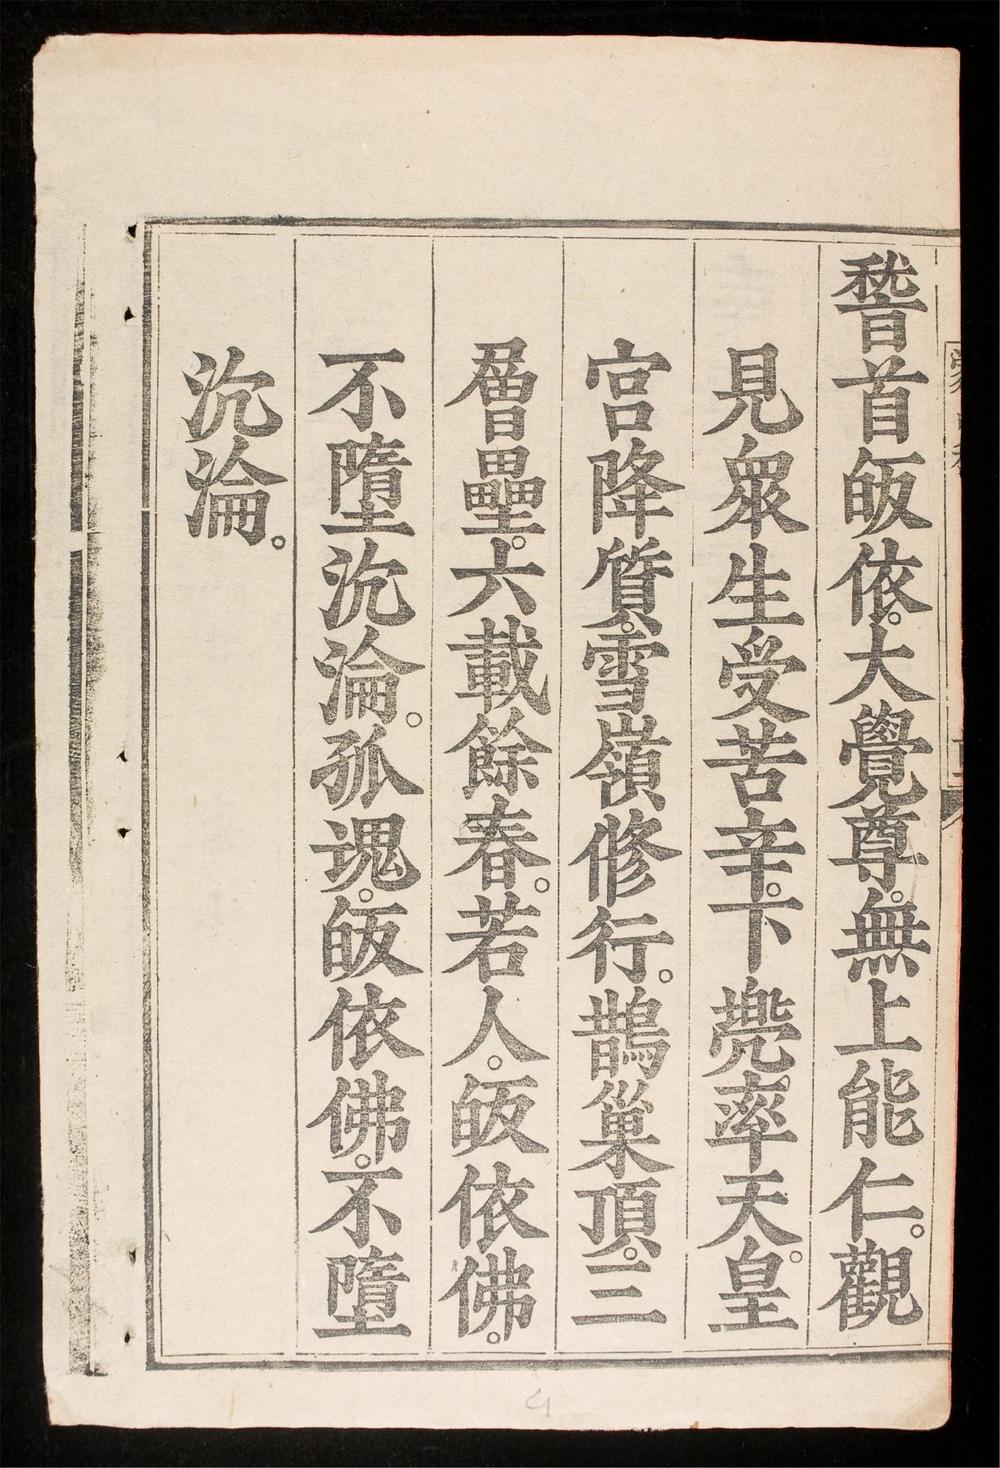 稽首皈依。大覺尊。無上能仁。觀
見衆生受苦辛。下兠率天皇
宫降質。雪嶺修行。鵲巢頂。三
層壘。六載餘春。若人。皈依佛。
不墮沉淪。孤魂。皈依佛。不墮
沉淪。